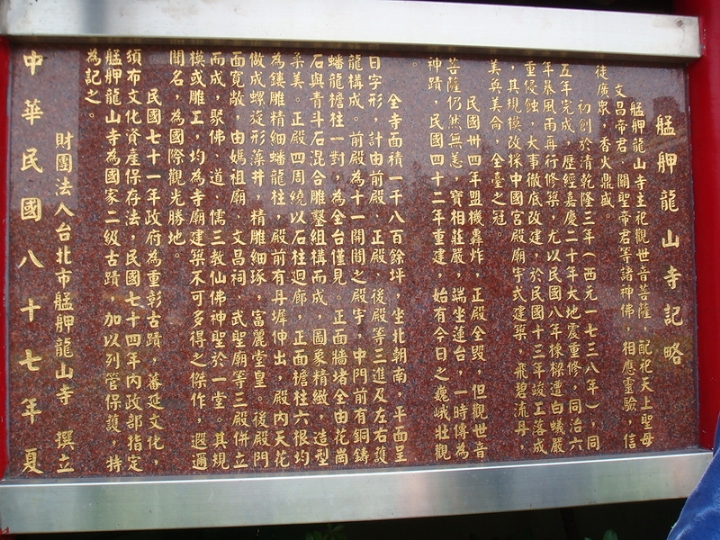 艋舺龍山寺記略
艋舺龍山寺主祀觀世音菩薩，配祀天上聖母
文昌帝君、關聖帝君等諸神佛，相應靈驗，信
徒廣眾，香火鼎盛。
初創於清乾隆三年（西元一七三八年），同
五年完成，歷經嘉慶二十年大地震重修，同治六
年暴風雨再行修築，尤以民國八年棟樑遭白蟻嚴
重侵蝕，大事徹底改建，於民國十三年竣工落成
，其規模改採中國宮殿廟宇式建築，飛碧流丹，
美奐美侖，全臺之冠。
民國卅四年盟機轟炸，正殿全毀，但觀世音
菩薩仍然無恙，寶相莊嚴，端坐蓮台，一時傳為
神蹟，民國四十二年重建，始有今日之巍峨壯觀
。
全寺面積一千八百餘坪，坐北朝南，平面呈
日字形，計由前殿、正殿、後殿等三進及左右護
龍構成。前殿為十一開間之殿宇，中門前有銅鑄
蟠龍檐柱一對，為全台僅見。正面牆堵全由花崗
石與青斗石混合雕鑿組構而成，圖象精緻，造型
柔美。正殿四周繞以石柱迴廊，正面檐柱六根均
為鏤雕精細蟠龍柱，殿前有丹墀伸出，殿內天花
做成螺旋形藻井，精雕細琢，富麗堂皇。後殿門
面寬敞，由媽祖廟、文昌祠、武聖廟等三殿併立
而成，聚佛、道、儒三教仙佛神聖於一堂。其規
模或雕工，均為寺廟建築不可多得之傑作，遐邇
聞名，為國際觀光勝地。
民國七十一年政府為重彰古蹟，蕃延文化，
頒布文化資產保存法，民國七十四年內政部指定
艋舺龍山寺為國家二級古蹟，加以列管保護，特
為記之。
財團法人台北市艋舺龍山寺 撰立
中華民國八十七年夏